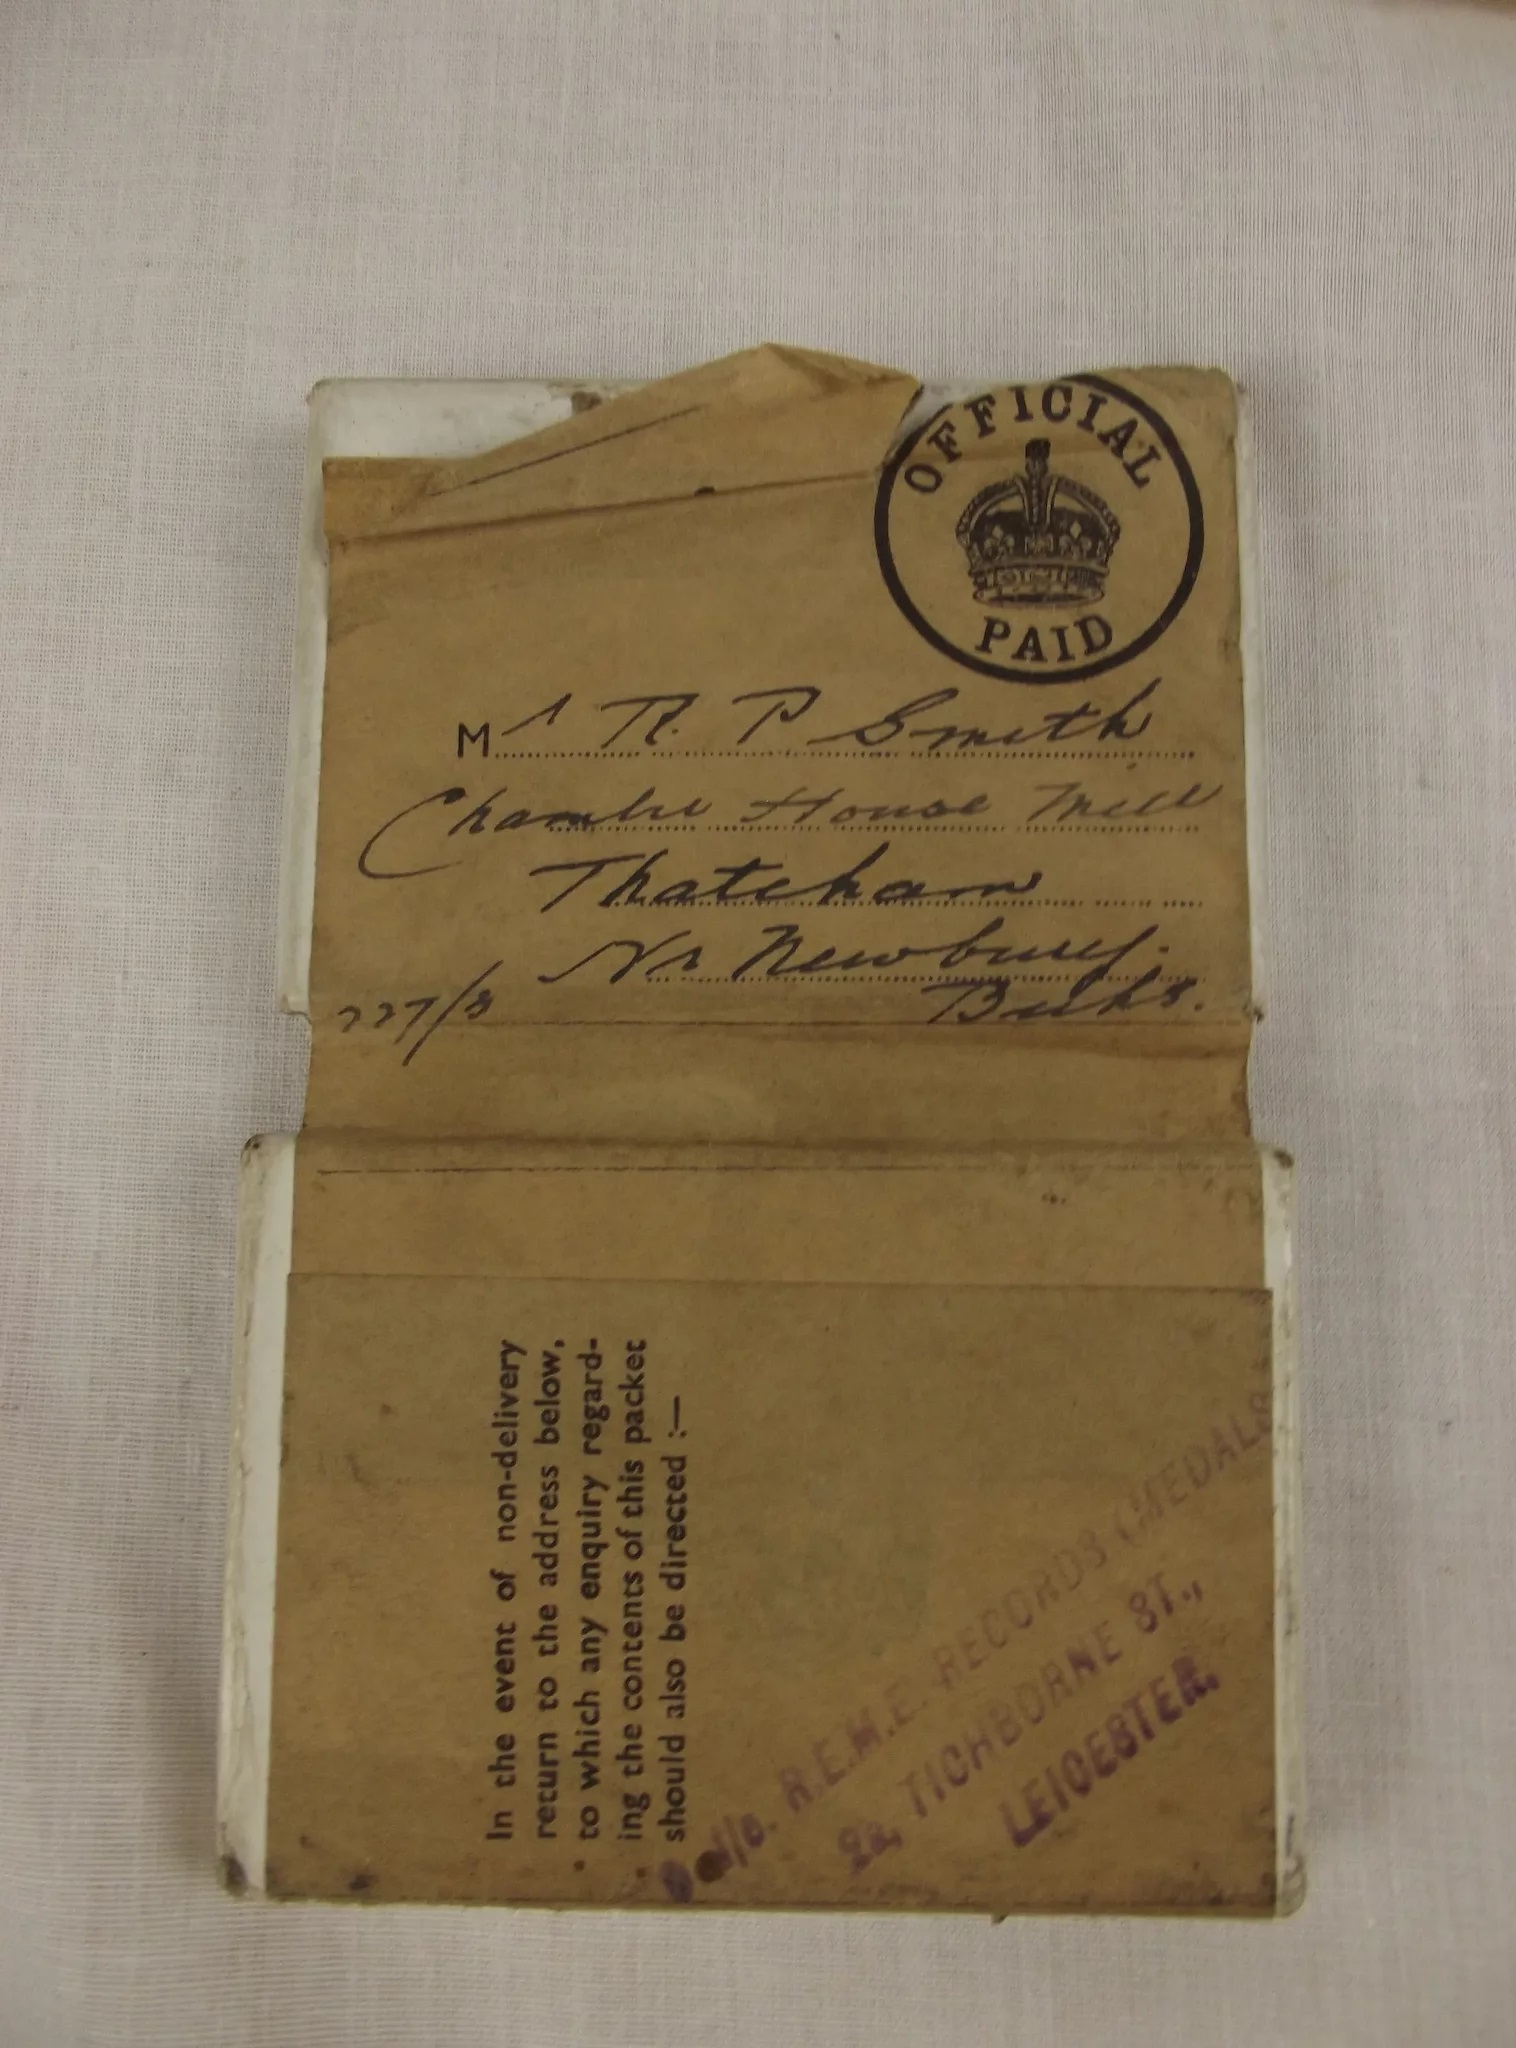 OFFICIAL
PAID
Mr R. P Smith
Chamber House Mill
Thatcham
Nr Newbury.
Bucks.
227/8
In the event of non-delivery
return to the address below,
to which any enquiry regard-
ing the contents of this packet
should also be directed :—
R.E.M.E. RECORDS (MEDALS
2a, TICHBORNE ST.,
LEICESTER.